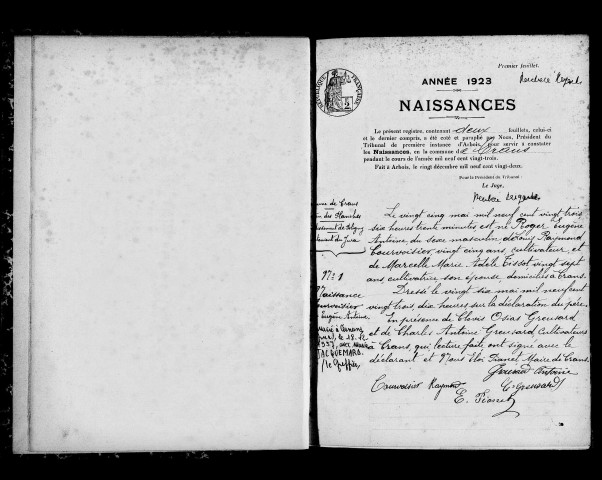 Premier feuillet.
ANNÉE 1923
NAISSANCES
RÉPUBLIQUE FRANÇAISE
Le présent registre, contenant deux feuillets, celui-ci
et le dernier compris, a été coté et paraphé par Nous, Président du
Tribunal de première instance d'Arbois, pour servir à constater
les Naissances, en la commune de Crans
pendant le cours de l'année mil neuf cent vingt-trois.
Fait à Arbois, le vingt décembre mil neuf cent vingt-deux.
Pour le Président du Tribunal :
Le Juge,
Le vingt cinq mai mil neuf cent vingt trois
six heures trente minutes est né Roger Eugène
Antoine du sexe masculin de Raymond
Courvoisier vingt cinq ans cultivateur et
de Marcelle Marie Adèle Tissot vingt sept
ans, cultivatrice son épouse domiciliés à Crans.
Dressé le vingt six mai mil neuf cent
vingt trois, dix heures sur la déclaration du père.
En présence de Clovis Osias Greusard
et de Charles Antoine Greusard Cultivateurs
à Crans, qui, lecture faite ont signé avec le
déclarant et Nous Eloi Pianet Maire de Crans.
Greusard Antoine
Courvoisier Raymond
C. Greusard
E. Pianet
de Crans
des Planches
du Jura
N° 1
Naissance
Courvoisier
Eugène Antoine
JACQUEMARD.
le Greffier